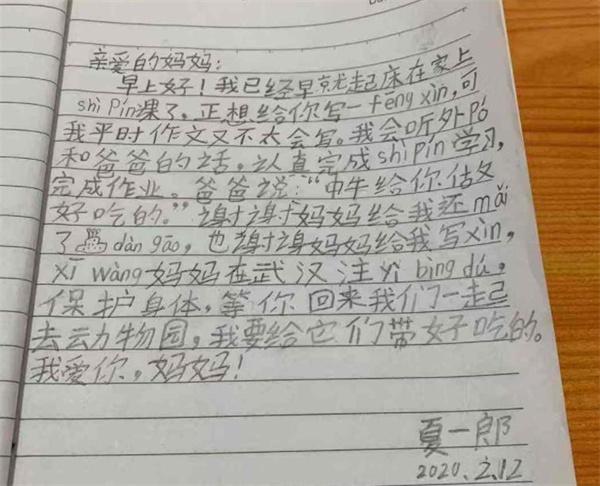 亲爱的妈妈：
早上好！我已经早就起床在家上
shì pín课了。正想给你写一fēng xìn，可
我平时作文又不太会写。我会听外pó
和爸爸的话。认真完成shì pín学习，
完成作业。爸爸说：“中午给你做
好吃的。”谢谢妈妈给我还mǎi
了 dàn gāo，也谢谢妈妈给我写xìn，
xī wàng妈妈在武汉注yì bìng dú。
保护身体，等你回来我们一起
去动物园，我要给它们带好吃的。
我爱你，妈妈！
夏一郎
2020.2.12